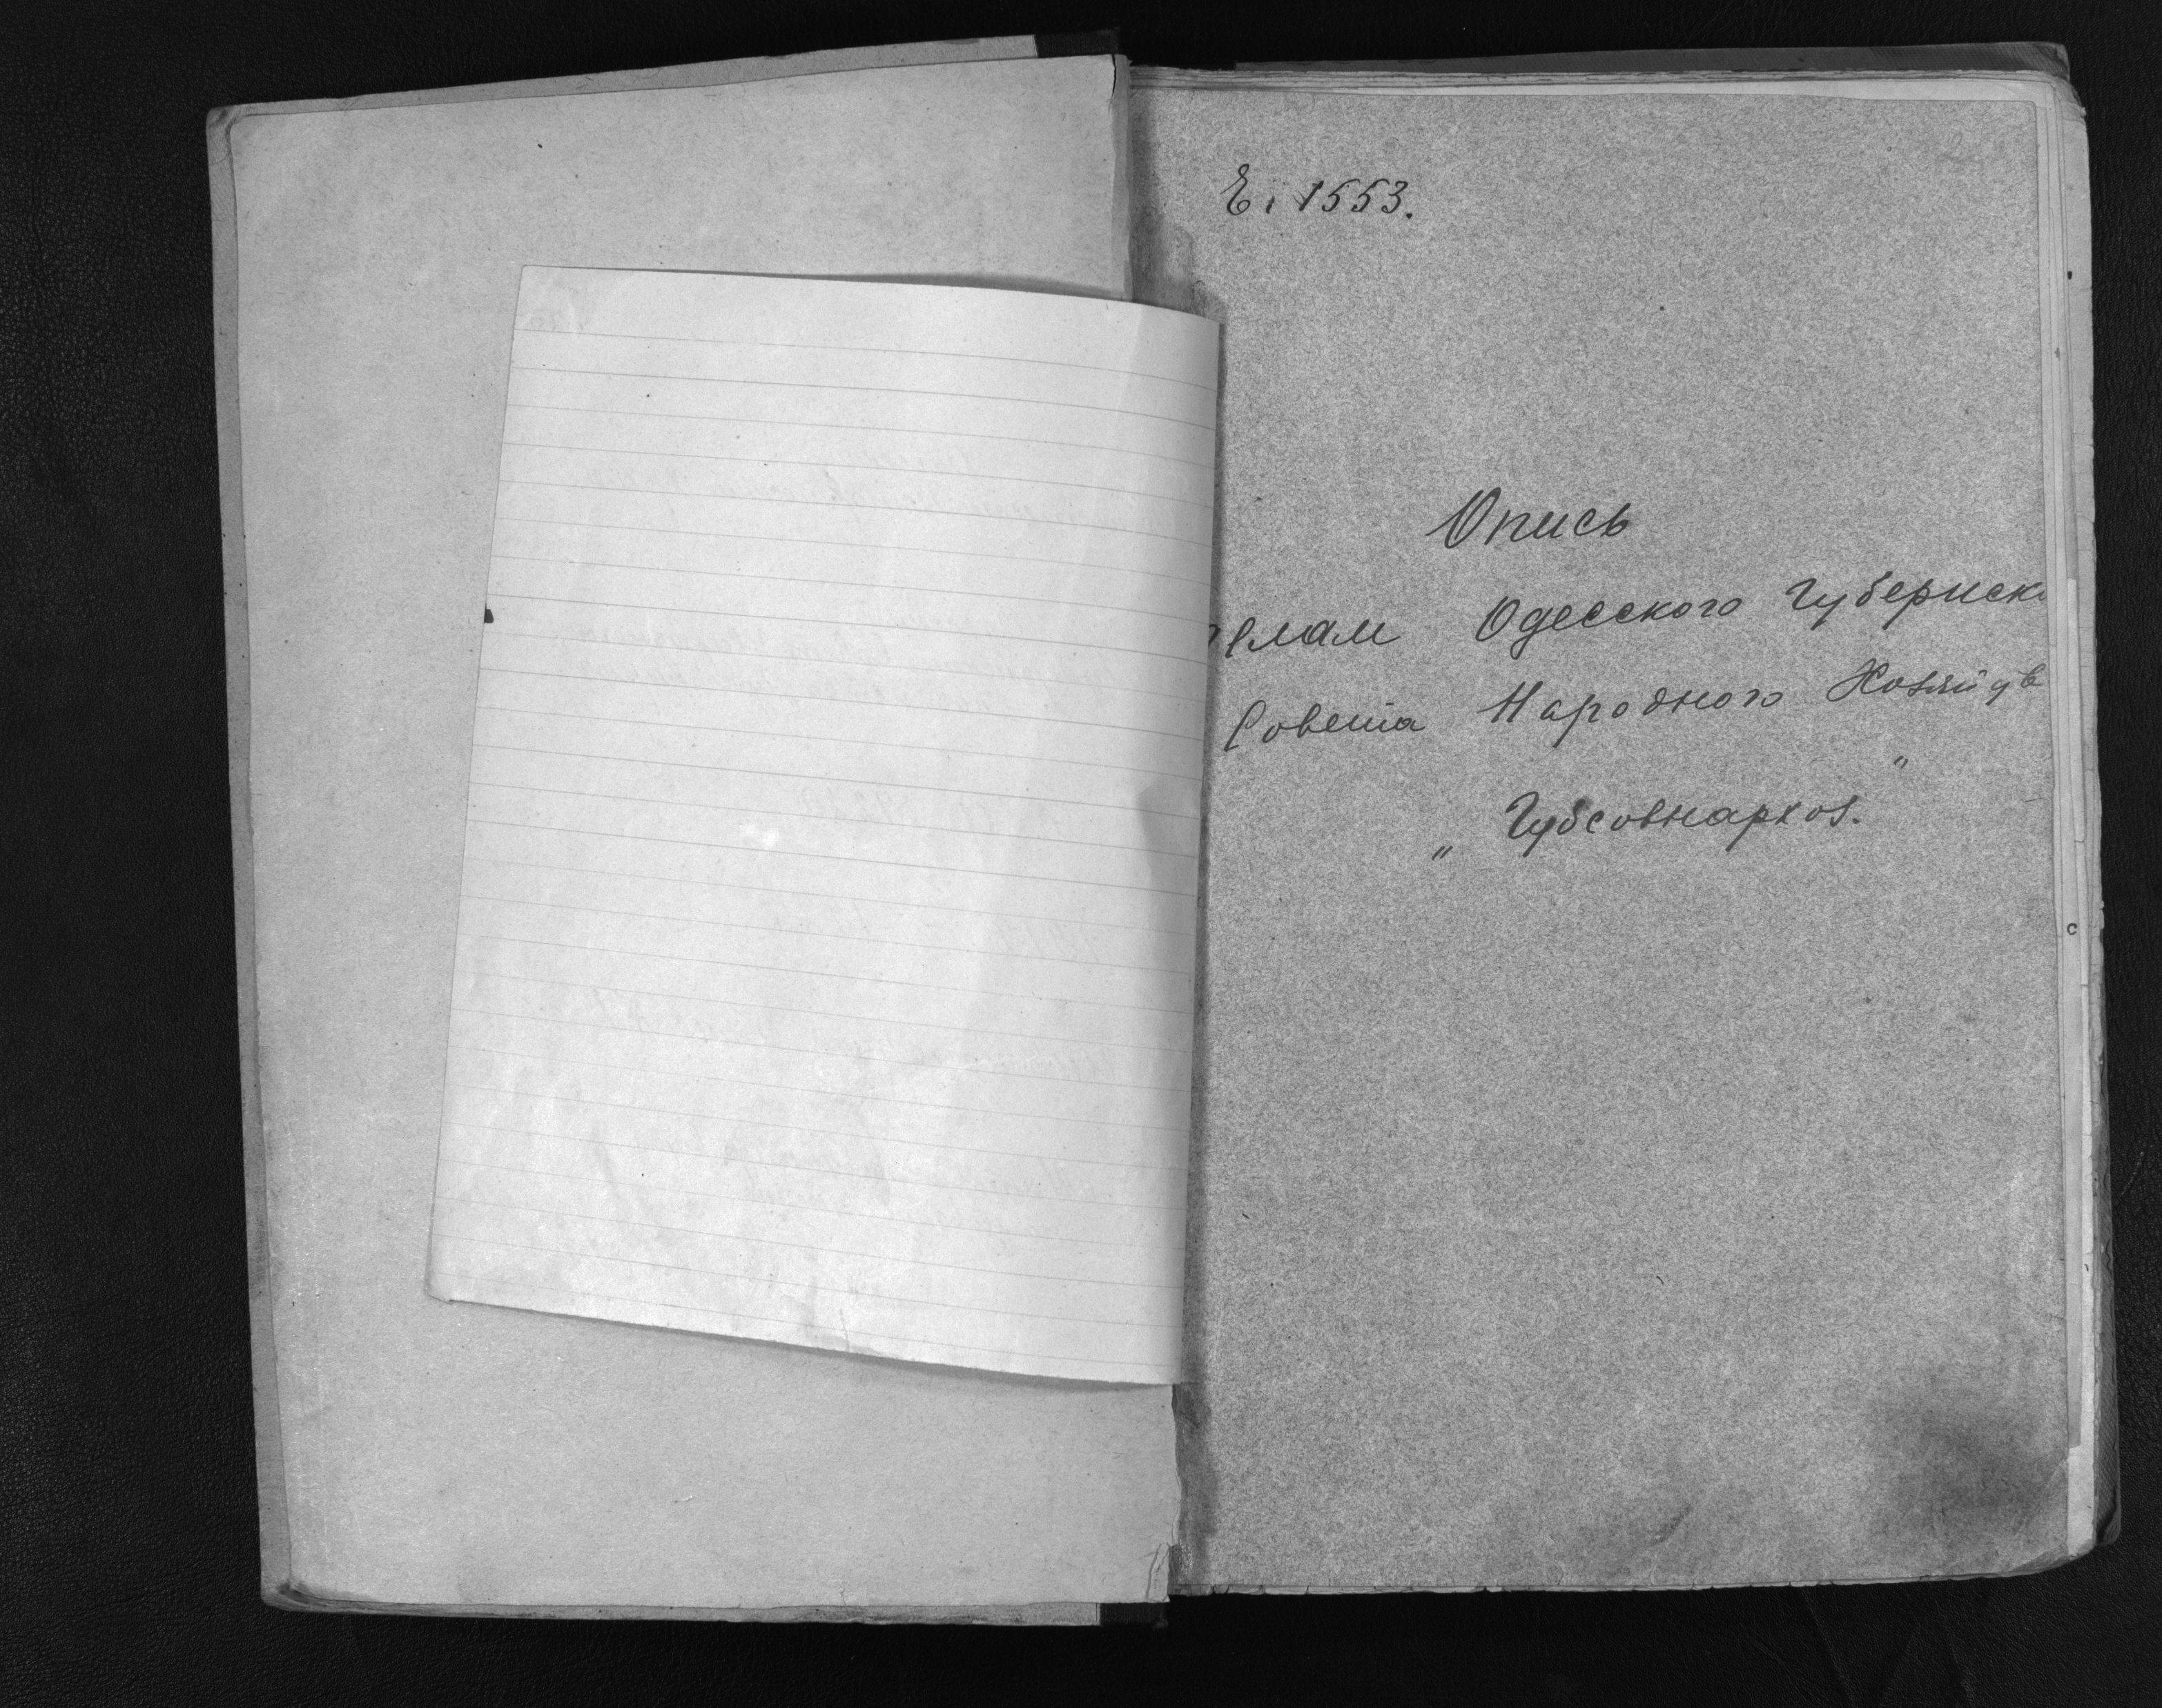 Е. 1553.
Опись
делам Одесского Губернск
Совета Народного Хозяйств
"
" Губсовнархоз.